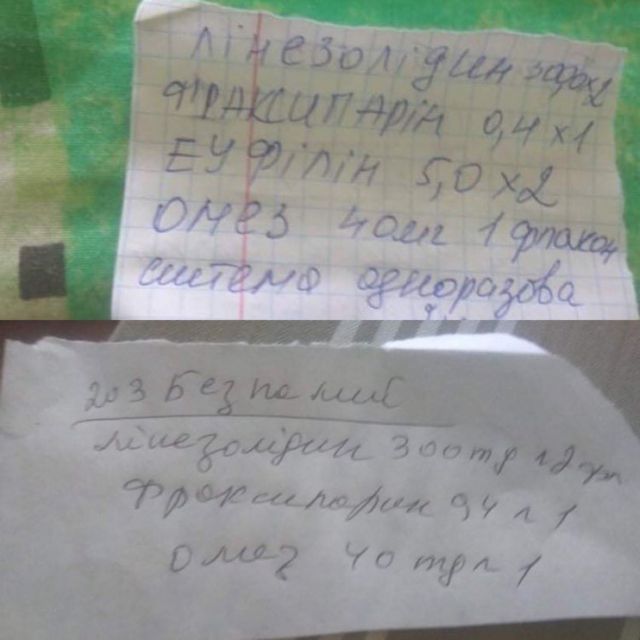 лінезолідин 300х2
ФРАКСИПАРІН 0,4 х 1
ЕУФІЛІН 5,0 х 2
ОМЕЗ 40мг 1 флакон
система одноразова
203 Безпалий
лінезолідин 300 mg
Фроксипарин 0,4 1
Омез 40 mg 1